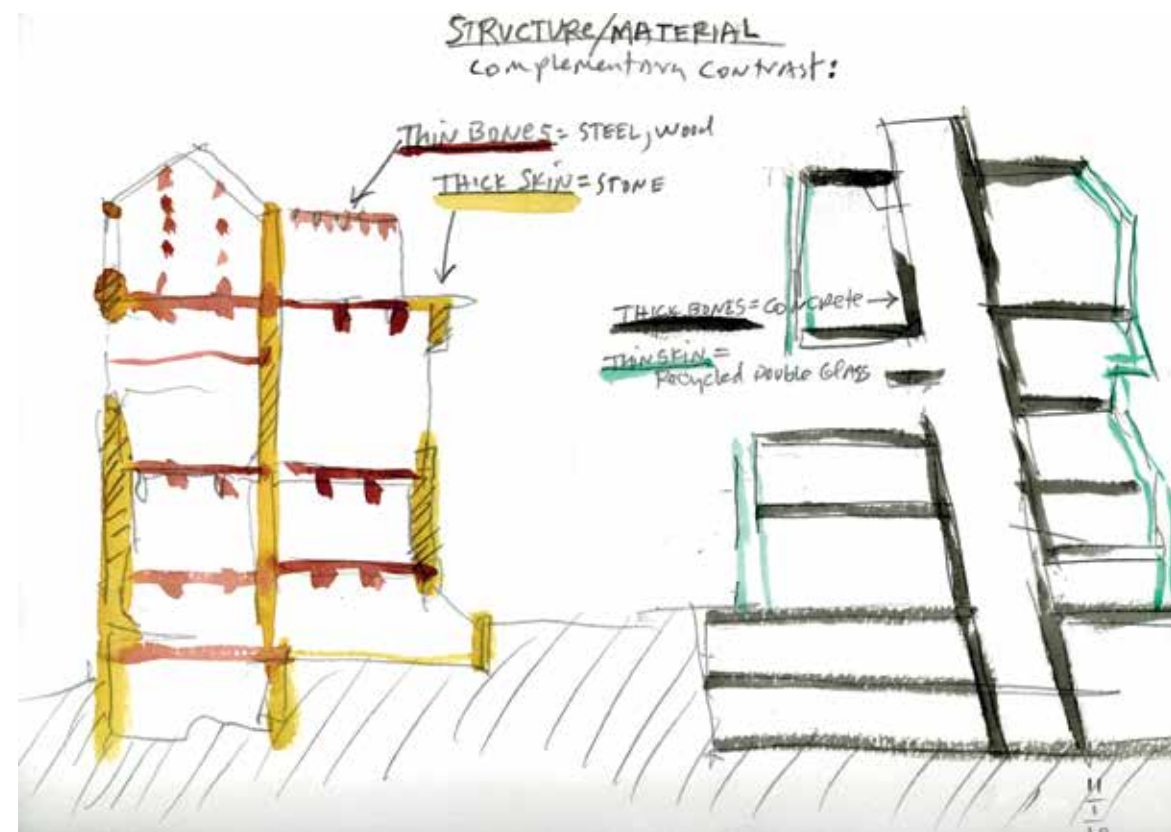 STRUCTURE/MATERIAL
complementary contrast:
THIN BONES = STEEL, wood
THICK SKIN = STONE
THICK BONES = CONCRETE
THIN SKIN =
Recycled Double Glass